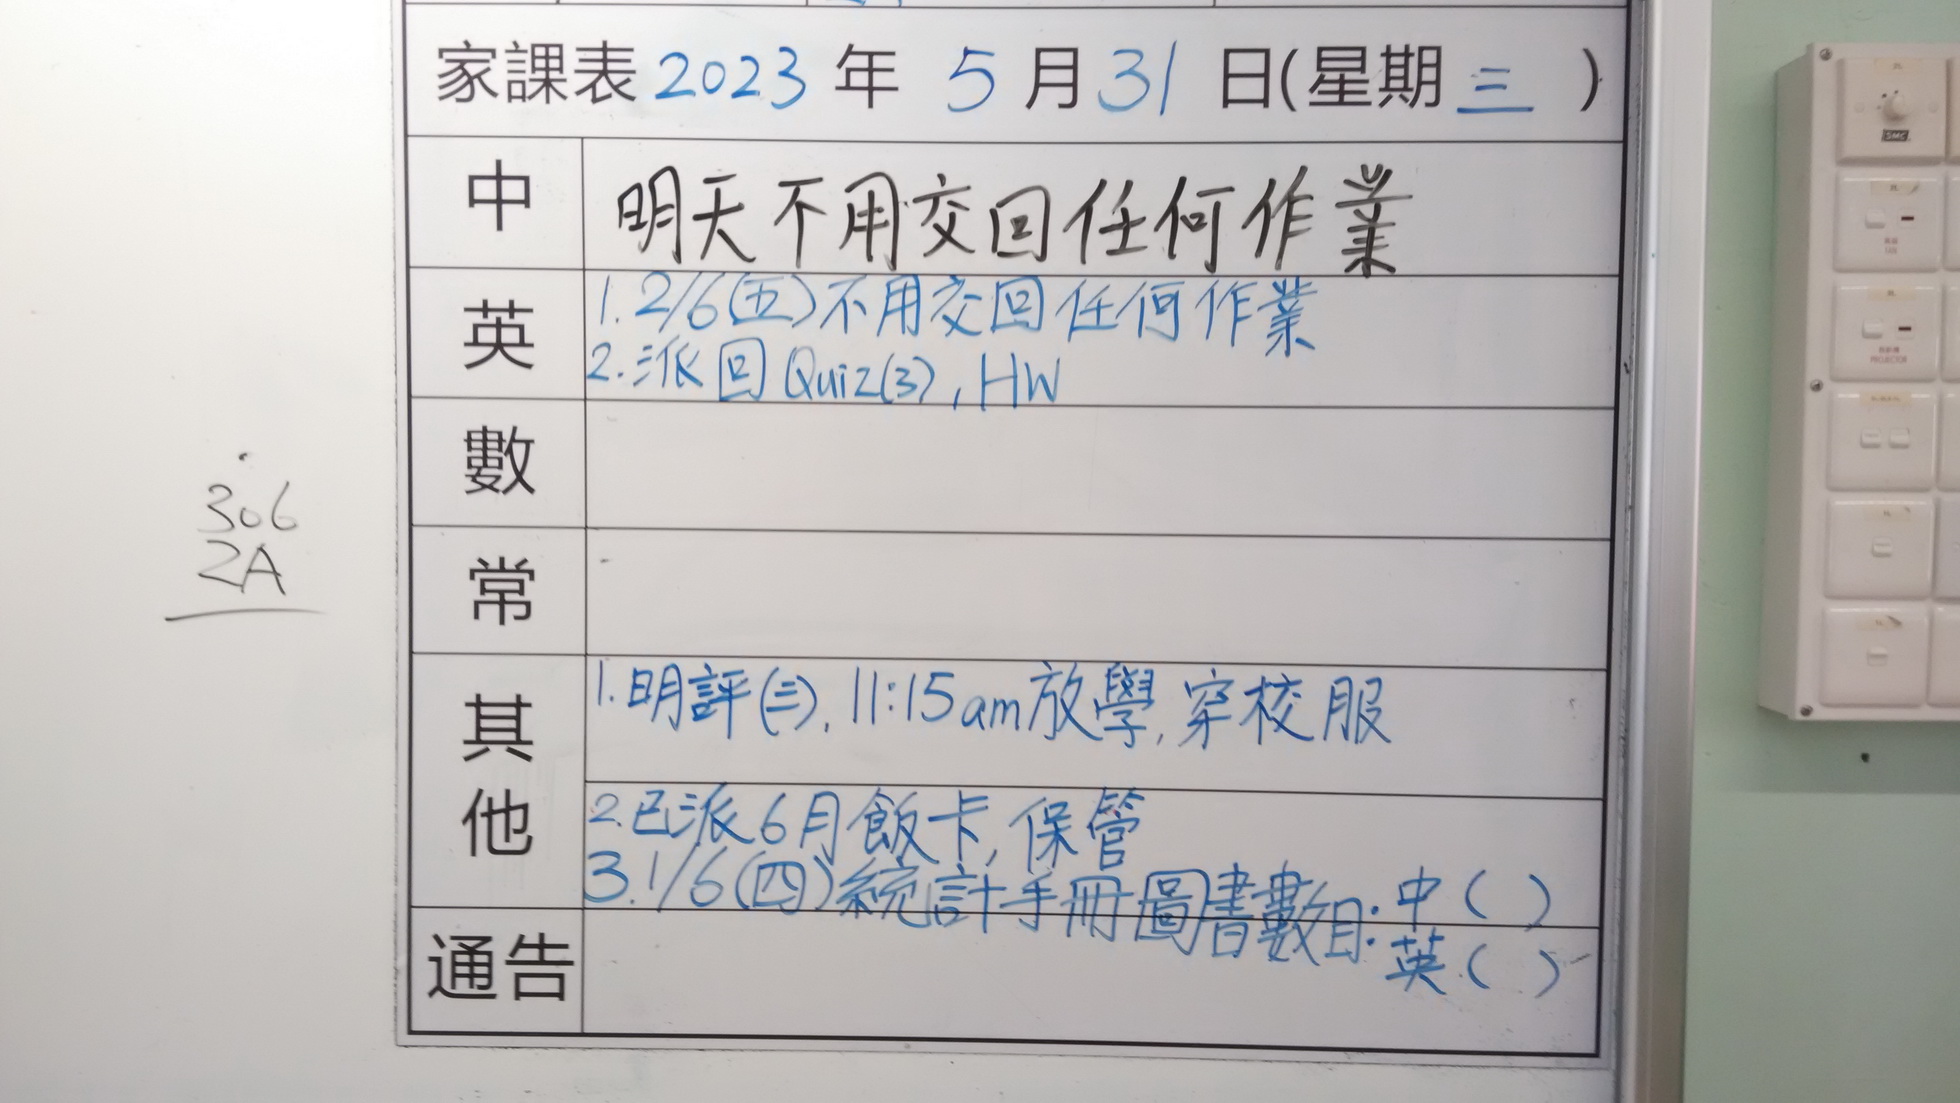 家課表 2023 年 5 月 31 日(星期 三 )
中 明天不用交回任何作業
英 1. 2/6(五)不用交回任何作業
2. 派回 Quiz(3), HW
數
常
其他 1. 明評(三), 11:15am放學, 穿校服
2. 已派6月飯卡, 保管
3. 1/6(四)統計手冊圖書數目: 中( )
英( )
通告
306
2A
SMC
PROJECTOR